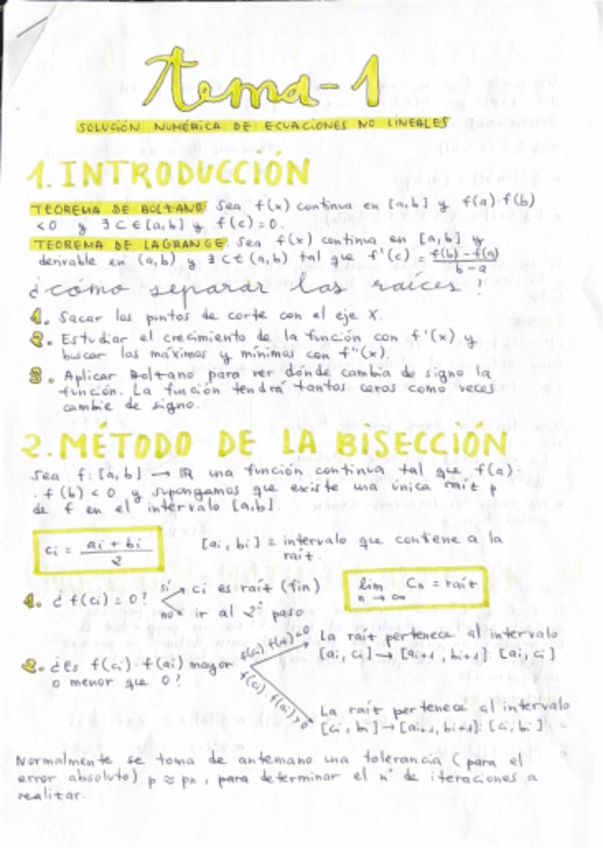 tema-1
SOLUCIÓN NUMÉRICA DE ECUACIONES NO LINEALES
1. INTRODUCCIÓN
TEOREMA DE BOLZANO: Sea f(x) continua en [a,b] y f(a)·f(b)
<0 y ∃ c ∈ [a,b] y f(c)=0.
TEOREMA DE LAGRANGE: Sea f(x) continua en [a,b] y
derivable en (a,b) y ∃ c ∈ (a,b) tal que f'(c) = f(b)-f(a) / b-a
¿cómo separar las raíces?
1. Sacar los puntos de corte con el eje X.
2. Estudiar el crecimiento de la función con f'(x) y
buscar los máximos y mínimos con f''(x).
3. Aplicar Bolzano para ver dónde cambia de signo la
función. La función tendrá tantos ceros como veces
cambie de signo.
2. MÉTODO DE LA BISECCIÓN
Sea f: [a,b] → ℝ una función continua tal que f(a)·
·f(b) < 0 y supongamos que existe una única raíz p
de f en el intervalo [a,b].
ci = ai + bi / 2
[ai, bi] = intervalo que contiene a la
raíz.
1. ¿f(ci) = 0? sí → ci es raíz (fin)
no → ir al 2º paso
lim n→∞ Cn = raíz
2. ¿Es f(ci)·f(ai) mayor
o menor que 0?
f(ci)·f(ai)<0
La raíz pertenece al intervalo
[ai, ci] → [ai+1, bi+1]: [ai, ci]
f(ci)·f(ai)>0
La raíz pertenece al intervalo
[ci, bi] → [ai+1, bi+1]: [ci, bi]
Normalmente se toma de antemano una tolerancia (para el
error absoluto) p ≈ pn, para determinar el nº de iteraciones a
realizar.